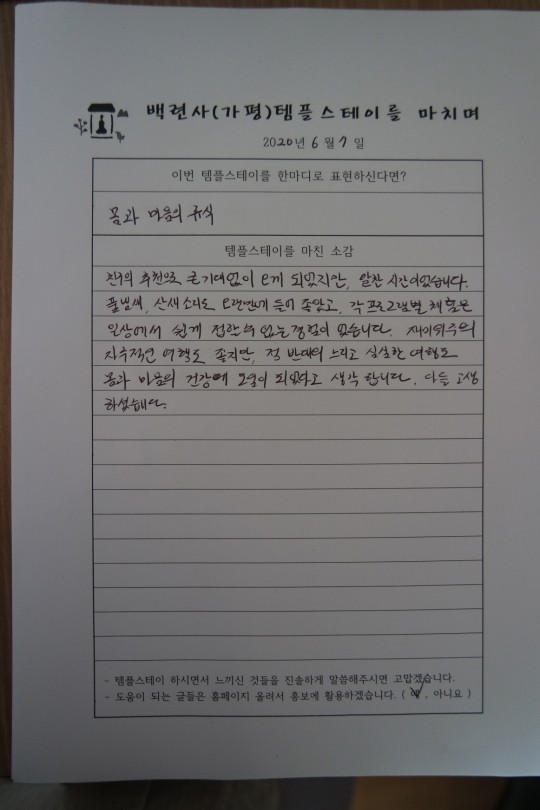 백련사(가평)템플스테이를 마치며
2020년 6 월 7 일
이번 템플스테이를 한마디로 표현하신다면?
몸과 마음의 휴식
템플스테이를 마친 소감
친구의 추천으로 큰 기대없이 오게 되었지만, 알찬 시간이었습니다.
풀냄새, 산새 소리도 오랜만에 들어 좋았고, 각 프로그램별 체험은
일상에서 쉽게 접할 수 있는 경험이 없습니다. 재미위주의
자극적인 여행도 좋지만, 정 반대의 느리고 심심한 여행도
몸과 마음의 건강에 도움이 되었다고 생각 합니다. 다들 고생
하셨습니다.
- 템플스테이 하시면서 느끼신 것들을 진솔하게 말씀해주시면 고맙겠습니다.
- 도움이 되는 글들은 홈페이지 올려서 홍보에 활용하겠습니다. ( 예 , 아니요 )